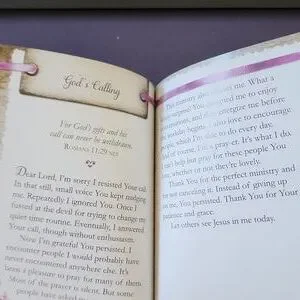 God's Calling
For God's gifts and his
call can never be withdrawn.
ROMANS 11:29 NLT
Dear Lord, I'm sorry I resisted Your call.
In that still, small voice You kept nudging
me. Repeatedly I ignored You. Once I
fussed at the devil for trying to change my
quiet time routine. Eventually, I answered
Your call, though without enthusiasm.
Now I'm grateful You persisted. I
encounter people I would probably have
never encountered anywhere else. It's
been a pleasure to pray for many of them.
Most of the prayer is silent. But some
people have asked
What a
me to enjoy
energize me before
begins. I also love to encourage
people, which I'm able to do every day.
And of course, I'm a pray-er. It's what I do.
I can't help but pray for these people You
love, whether or not they're lovely.
Thank You for the perfect ministry and
for not rescinding it. Instead of giving up
on me, You persisted. Thank You for Your
patience and grace.
Let others see Jesus in me today.